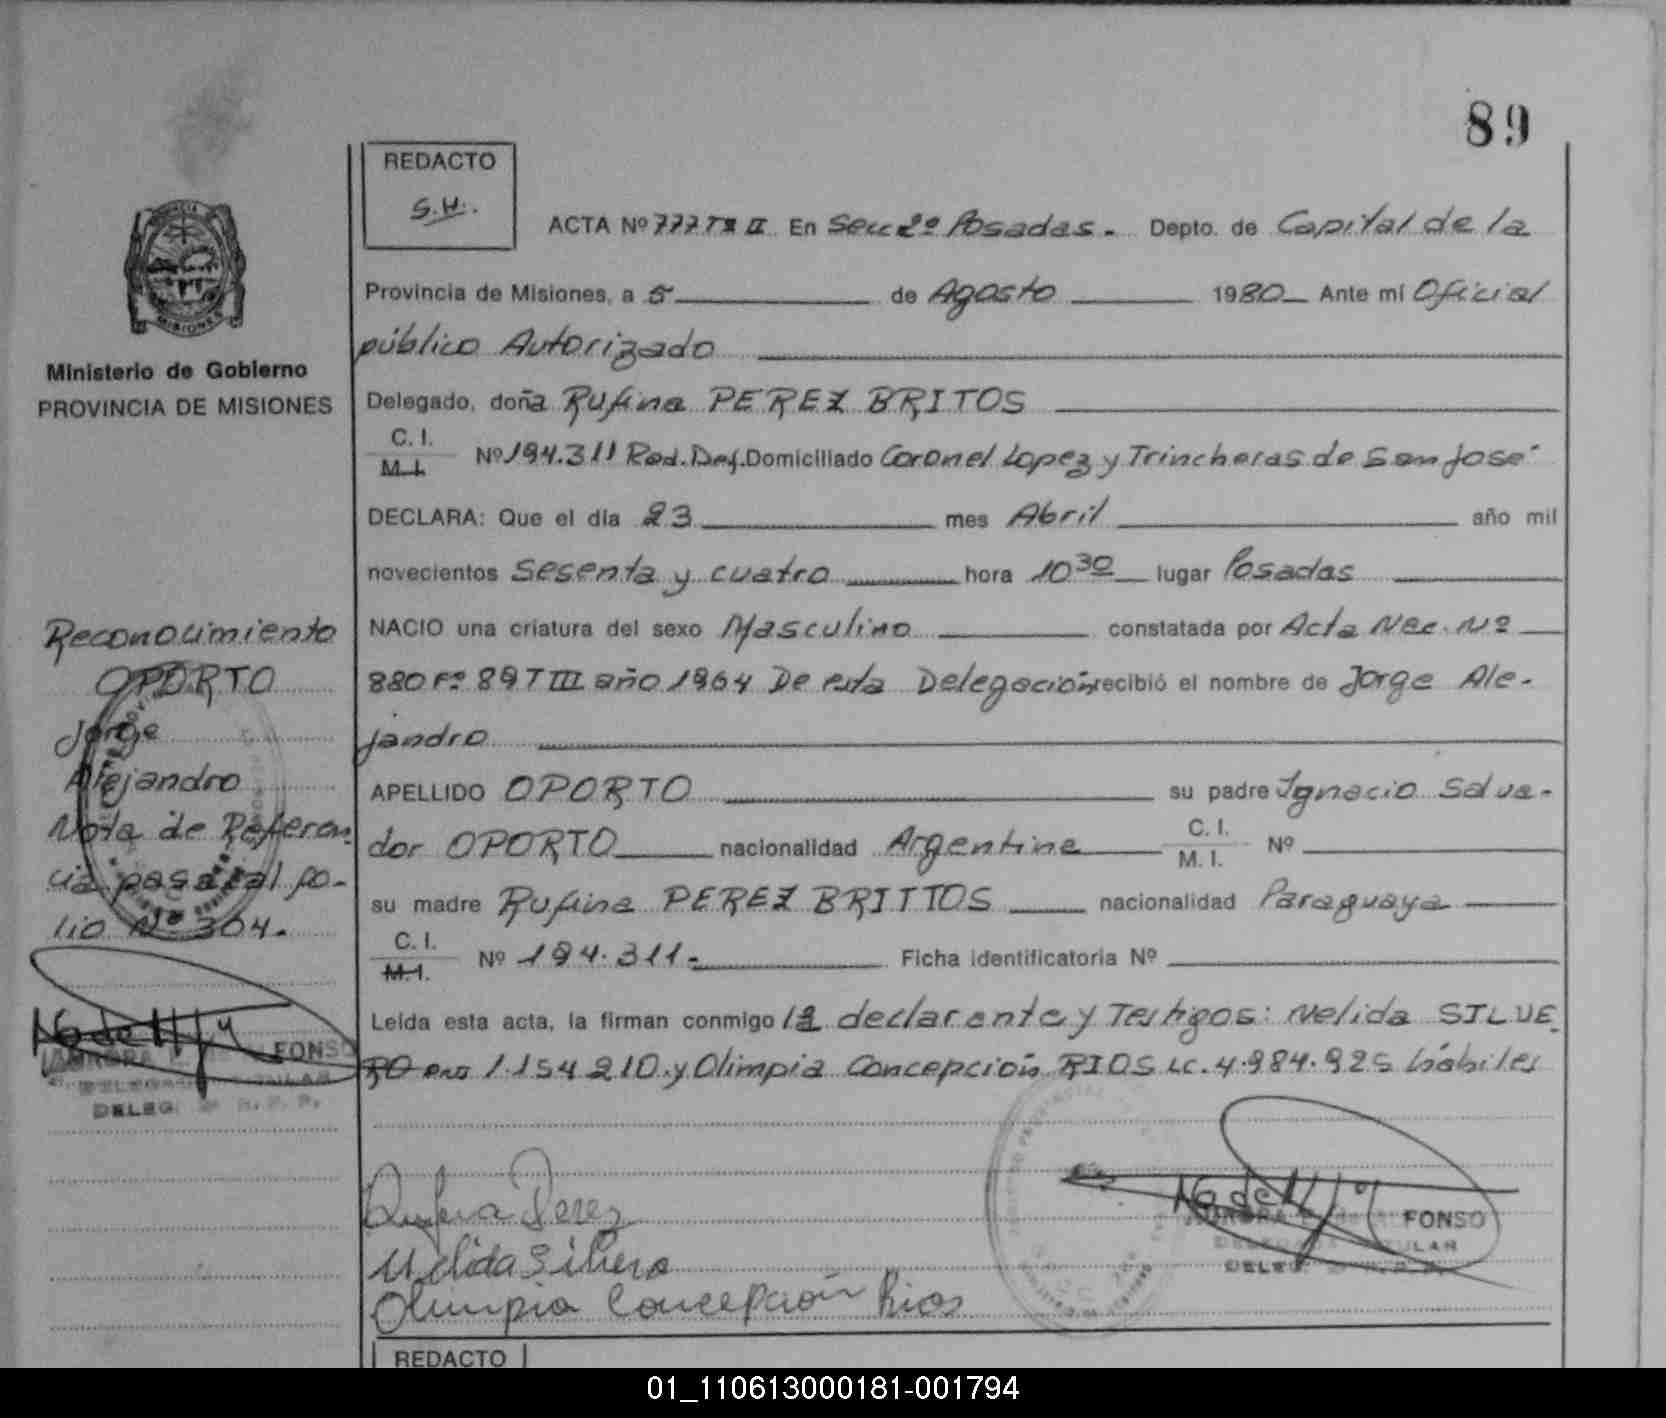 89
REDACTO
S.H.
ACTA Nº 777 Tº II En Secc 2º Posadas.- Depto. de Capital de la
Provincia de Misiones, a 5 de Agosto 1980 Ante mi Oficial
público Autorizado
Ministerio de Gobierno
PROVINCIA DE MISIONES
Delegado, doña Rufina PEREZ BRITOS
C. I.
M. I. Nº 194.311 Rad. Def. Domiciliado Coronel Lopez y Trincheras de San José
DECLARA: Que el día 23 mes Abril año mil
novecientos sesenta y cuatro hora 10 30 lugar Posadas
NACIO una criatura del sexo Masculino constatada por Acta Nac. Nº
880 Fº 89 T III año 1964 De esta Delegación recibió el nombre de Jorge Ale-
jandro
APELLIDO OPORTO su padre Ignacio Salva-
dor OPORTO nacionalidad Argentina C. I. M. I. Nº
su madre Rufina PEREZ BRITTOS nacionalidad Paraguaya
C. I.
M. I. Nº 194.311.- Ficha identificatoria Nº
Leída esta acta, la firman conmigo la declarante y Testigos: Nelida SILVE
RO 1.154 210 y Olimpia Concepción RIOS LC. 4.984.925 hábiles
Reconocimiento
OPORTO
Jorge
Alejandro
Nota de Referen
cia pasa al fo-
lio Nº 304.
FONSO
DELEG.
Rufina Perez
Nelida Silvero
Olimpia Concepción Rios
FONSO
DELEG.
REDACTO
01_110613000181-001794